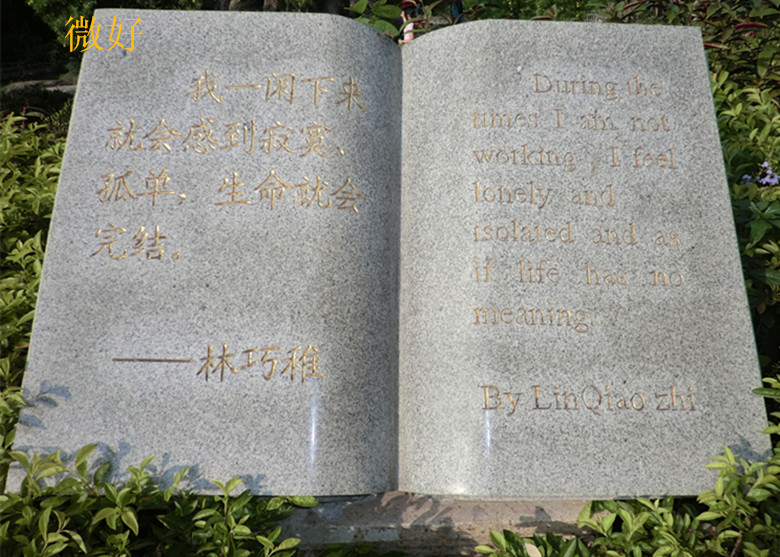 微好
我一闲下来
就会感到寂寞、
孤单，生命就会
完结。
——林巧稚
During the
times I am not
working , I feel
lonely and
isolated and as
if life has no
meaning.
By LinQiao zhi